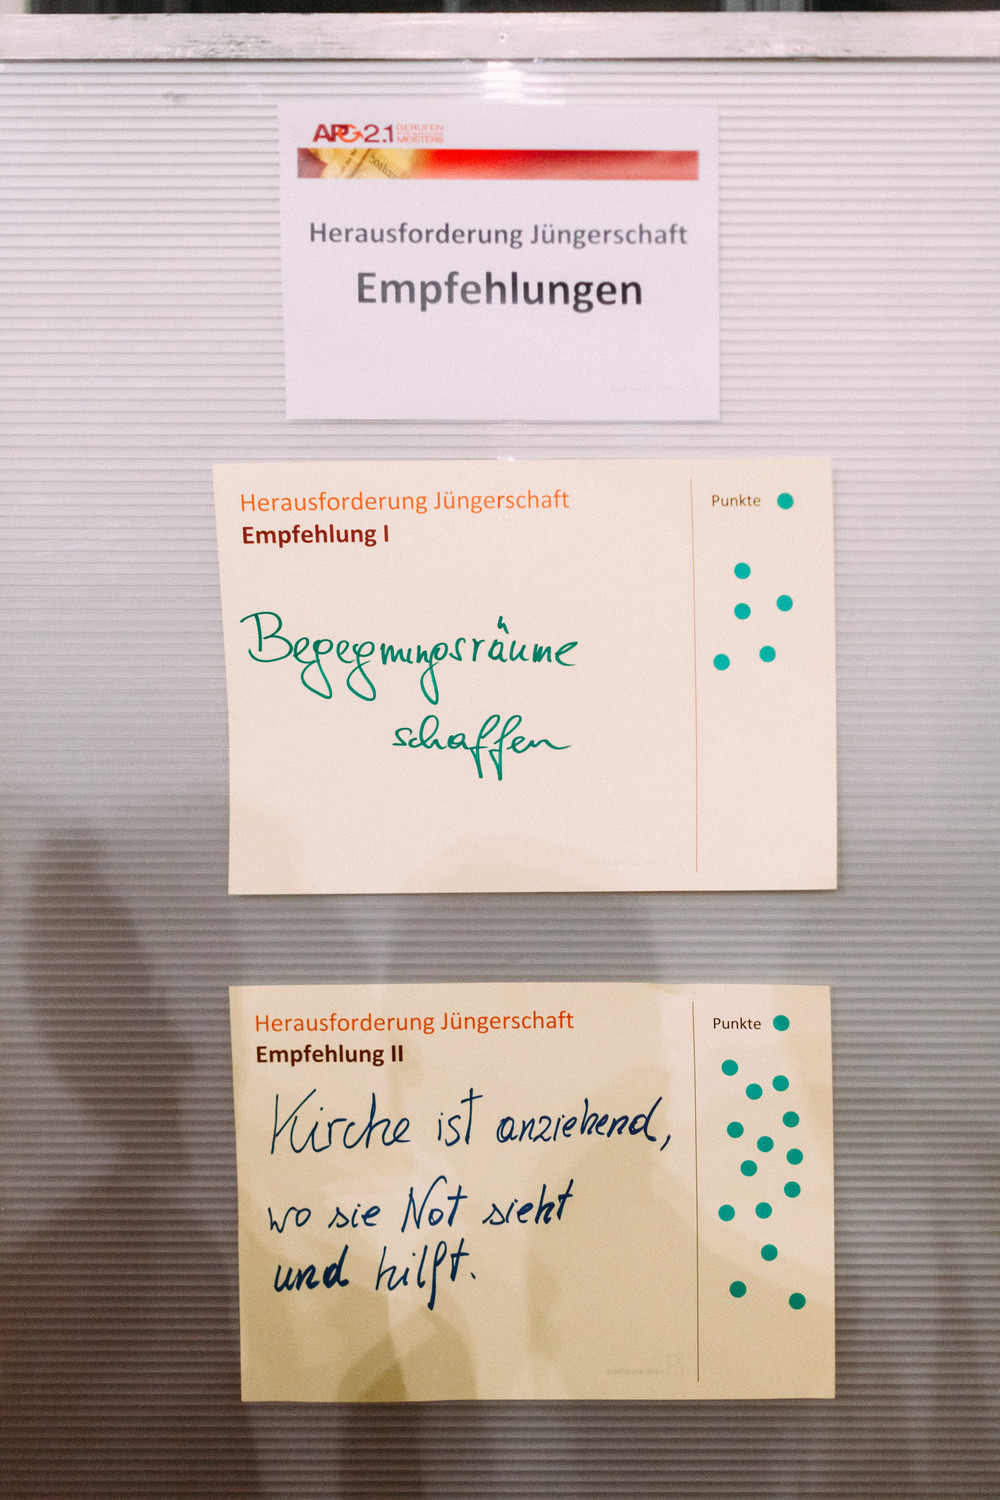 APG 2.1 GERUFEN
MEISTERS
Herausforderung Jüngerschaft
Empfehlungen
Herausforderung Jüngerschaft
Empfehlung I
Punkte
Begegnungsräume
schaffen
Herausforderung Jüngerschaft
Empfehlung II
Punkte
Kirche ist anziehend,
wo sie Not sieht
und hilft.
Erzdiözese Wien